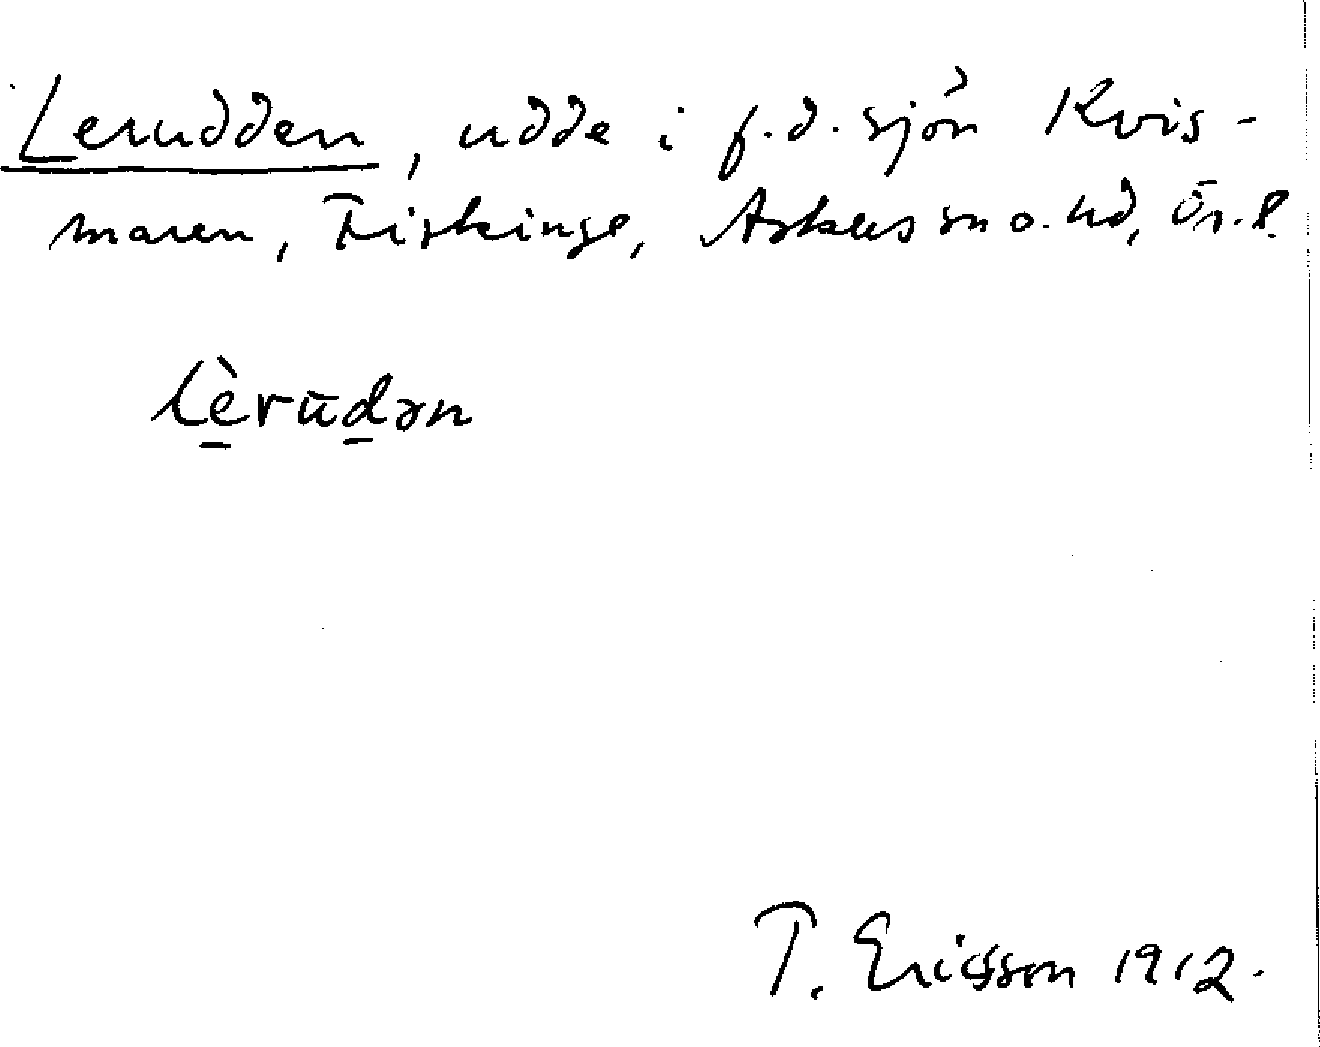 Lerudden, udde i f.d. sjön Kvis-
maren, Fiskinge, Askers sn o. hd, Ör. l.
lèrūdən
T. Ericsson 1912.